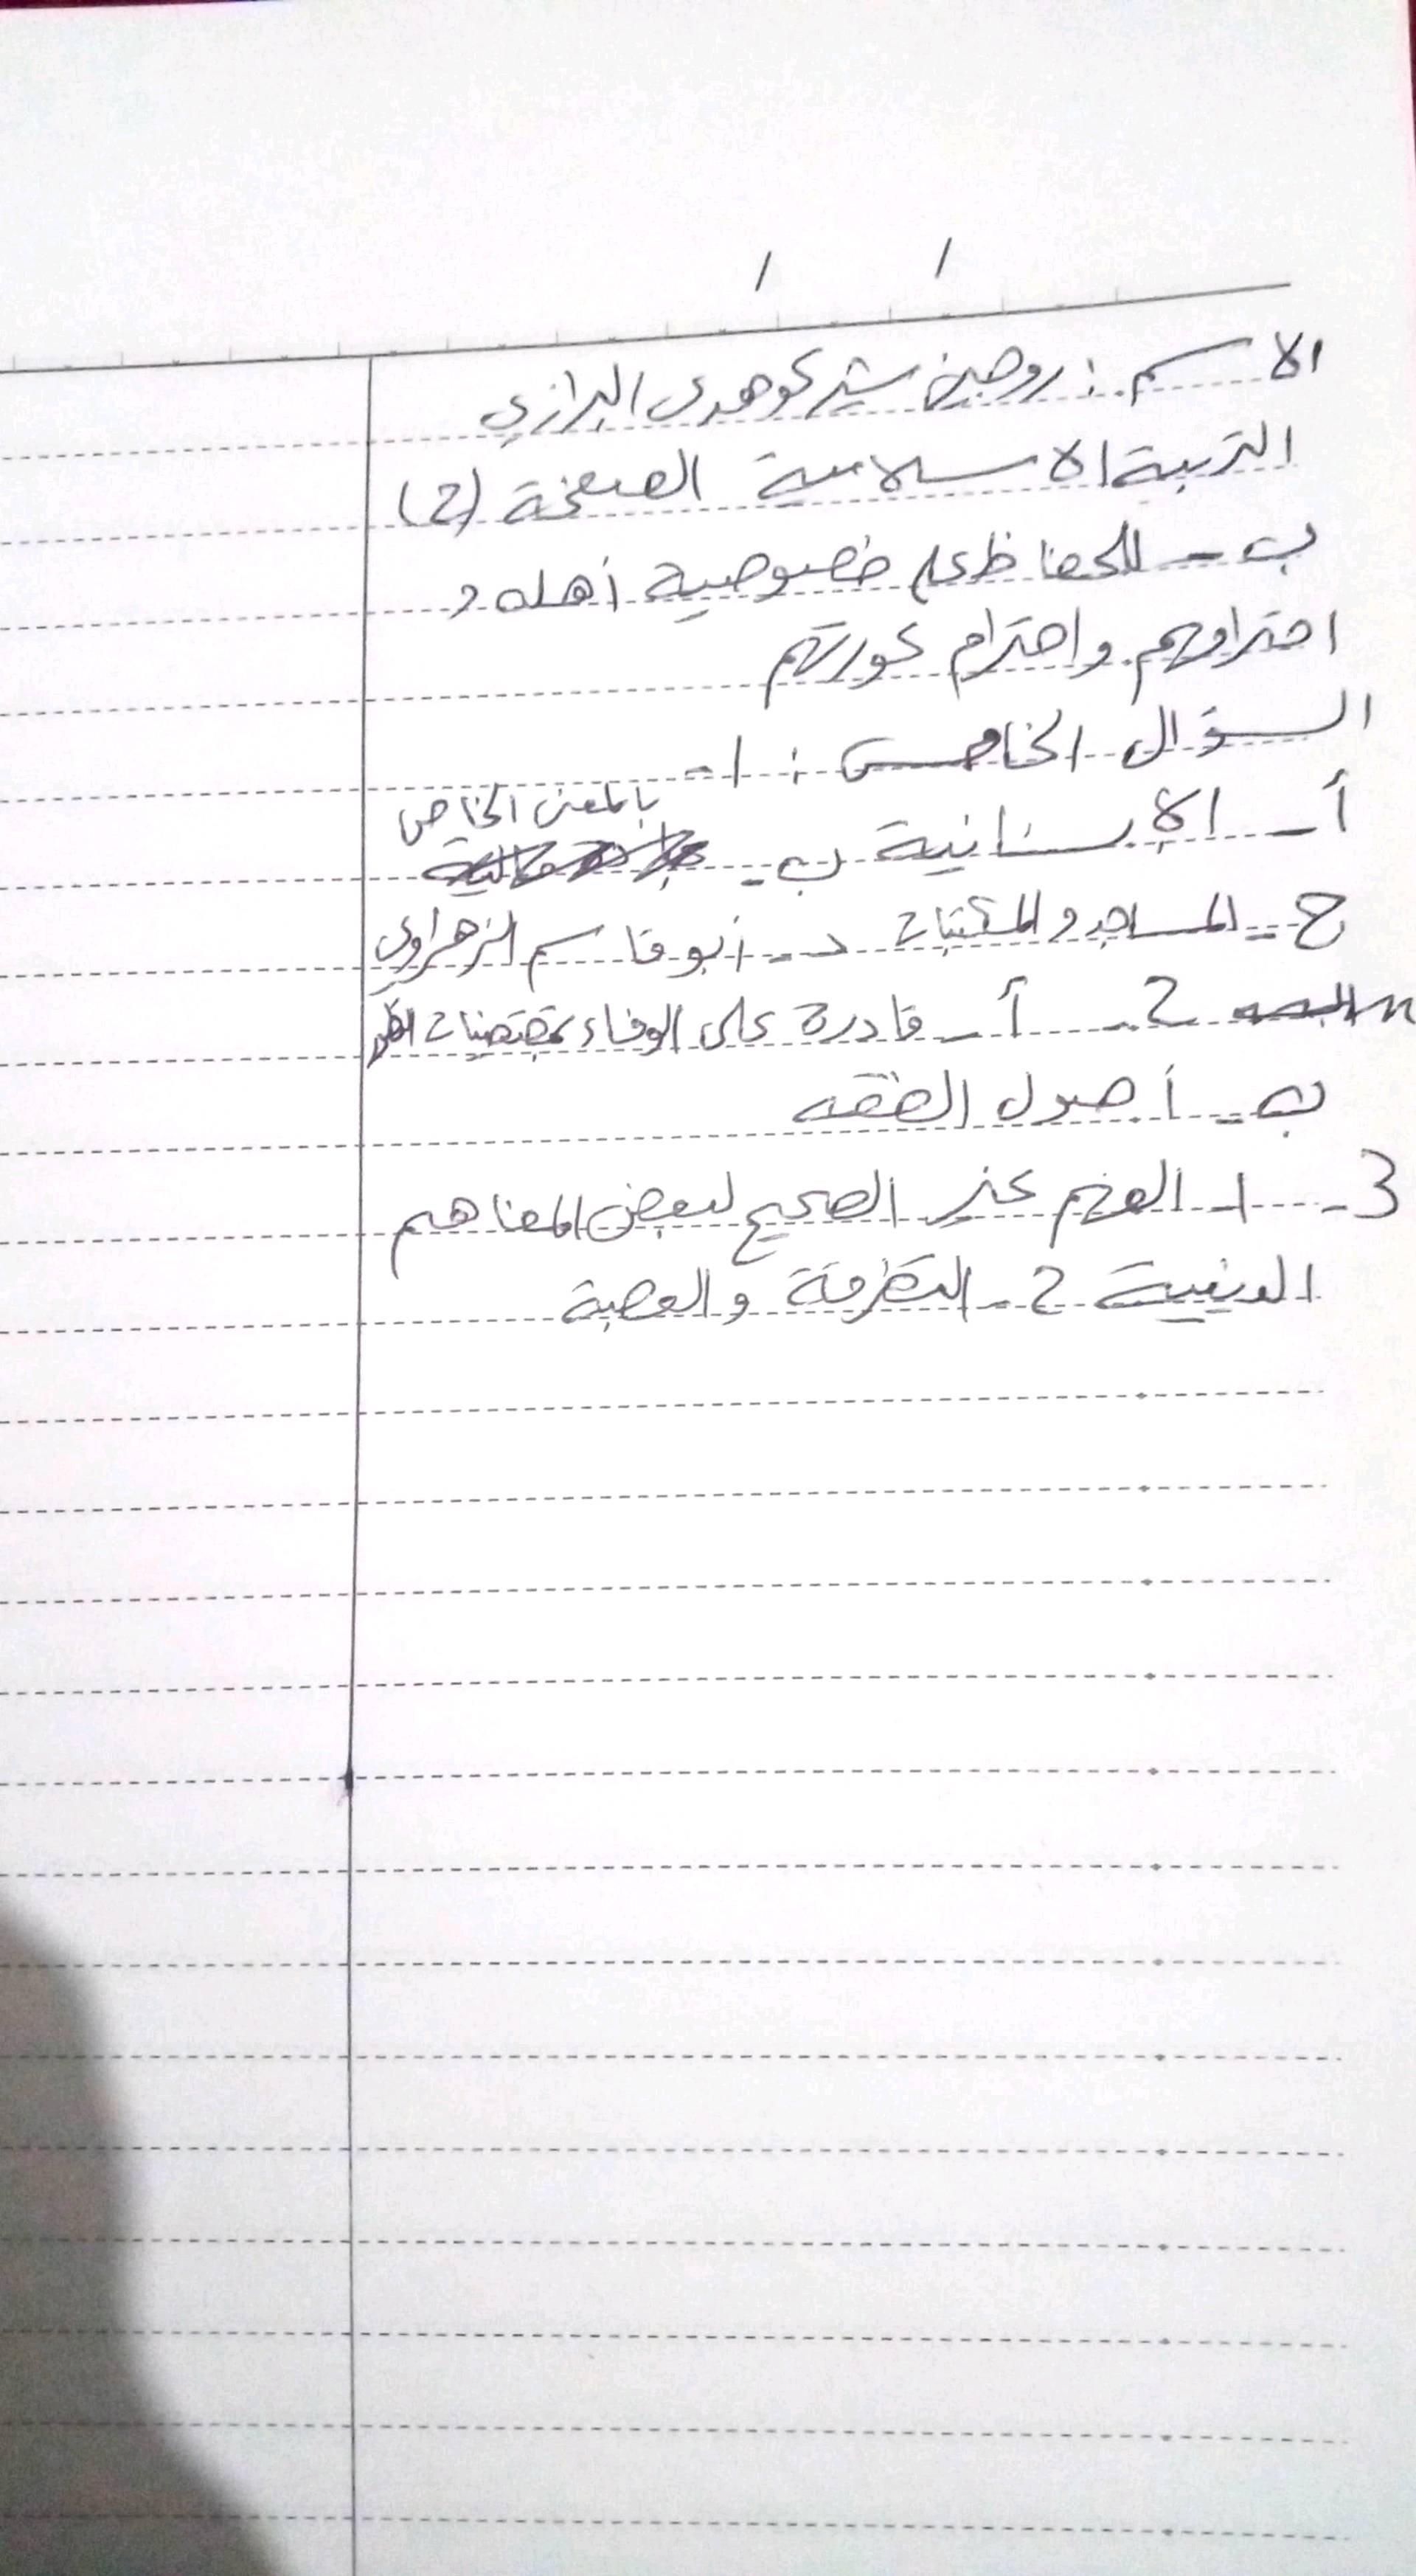 / /
الاسم : روجين شيركوه هدى البرازي
التربية الاسلامية الصفحة (2)
ب - للحفاظ على خصوصية أهله و
احترامهم واحترام عورتهم
السؤال الخامس : 1-
أ - الإنسانية ب - بالمعنى الخاص
ج - المساجد والمكتبات د - أبو قاسم الزهراوي
2 - أ - قادرة على الوفاء بمقتضيات
ب - أصول الفقه
3 - 1- الفهم غير الصحيح لبعض المفاهيم
الدينية 2 - التطرفة والعصبة